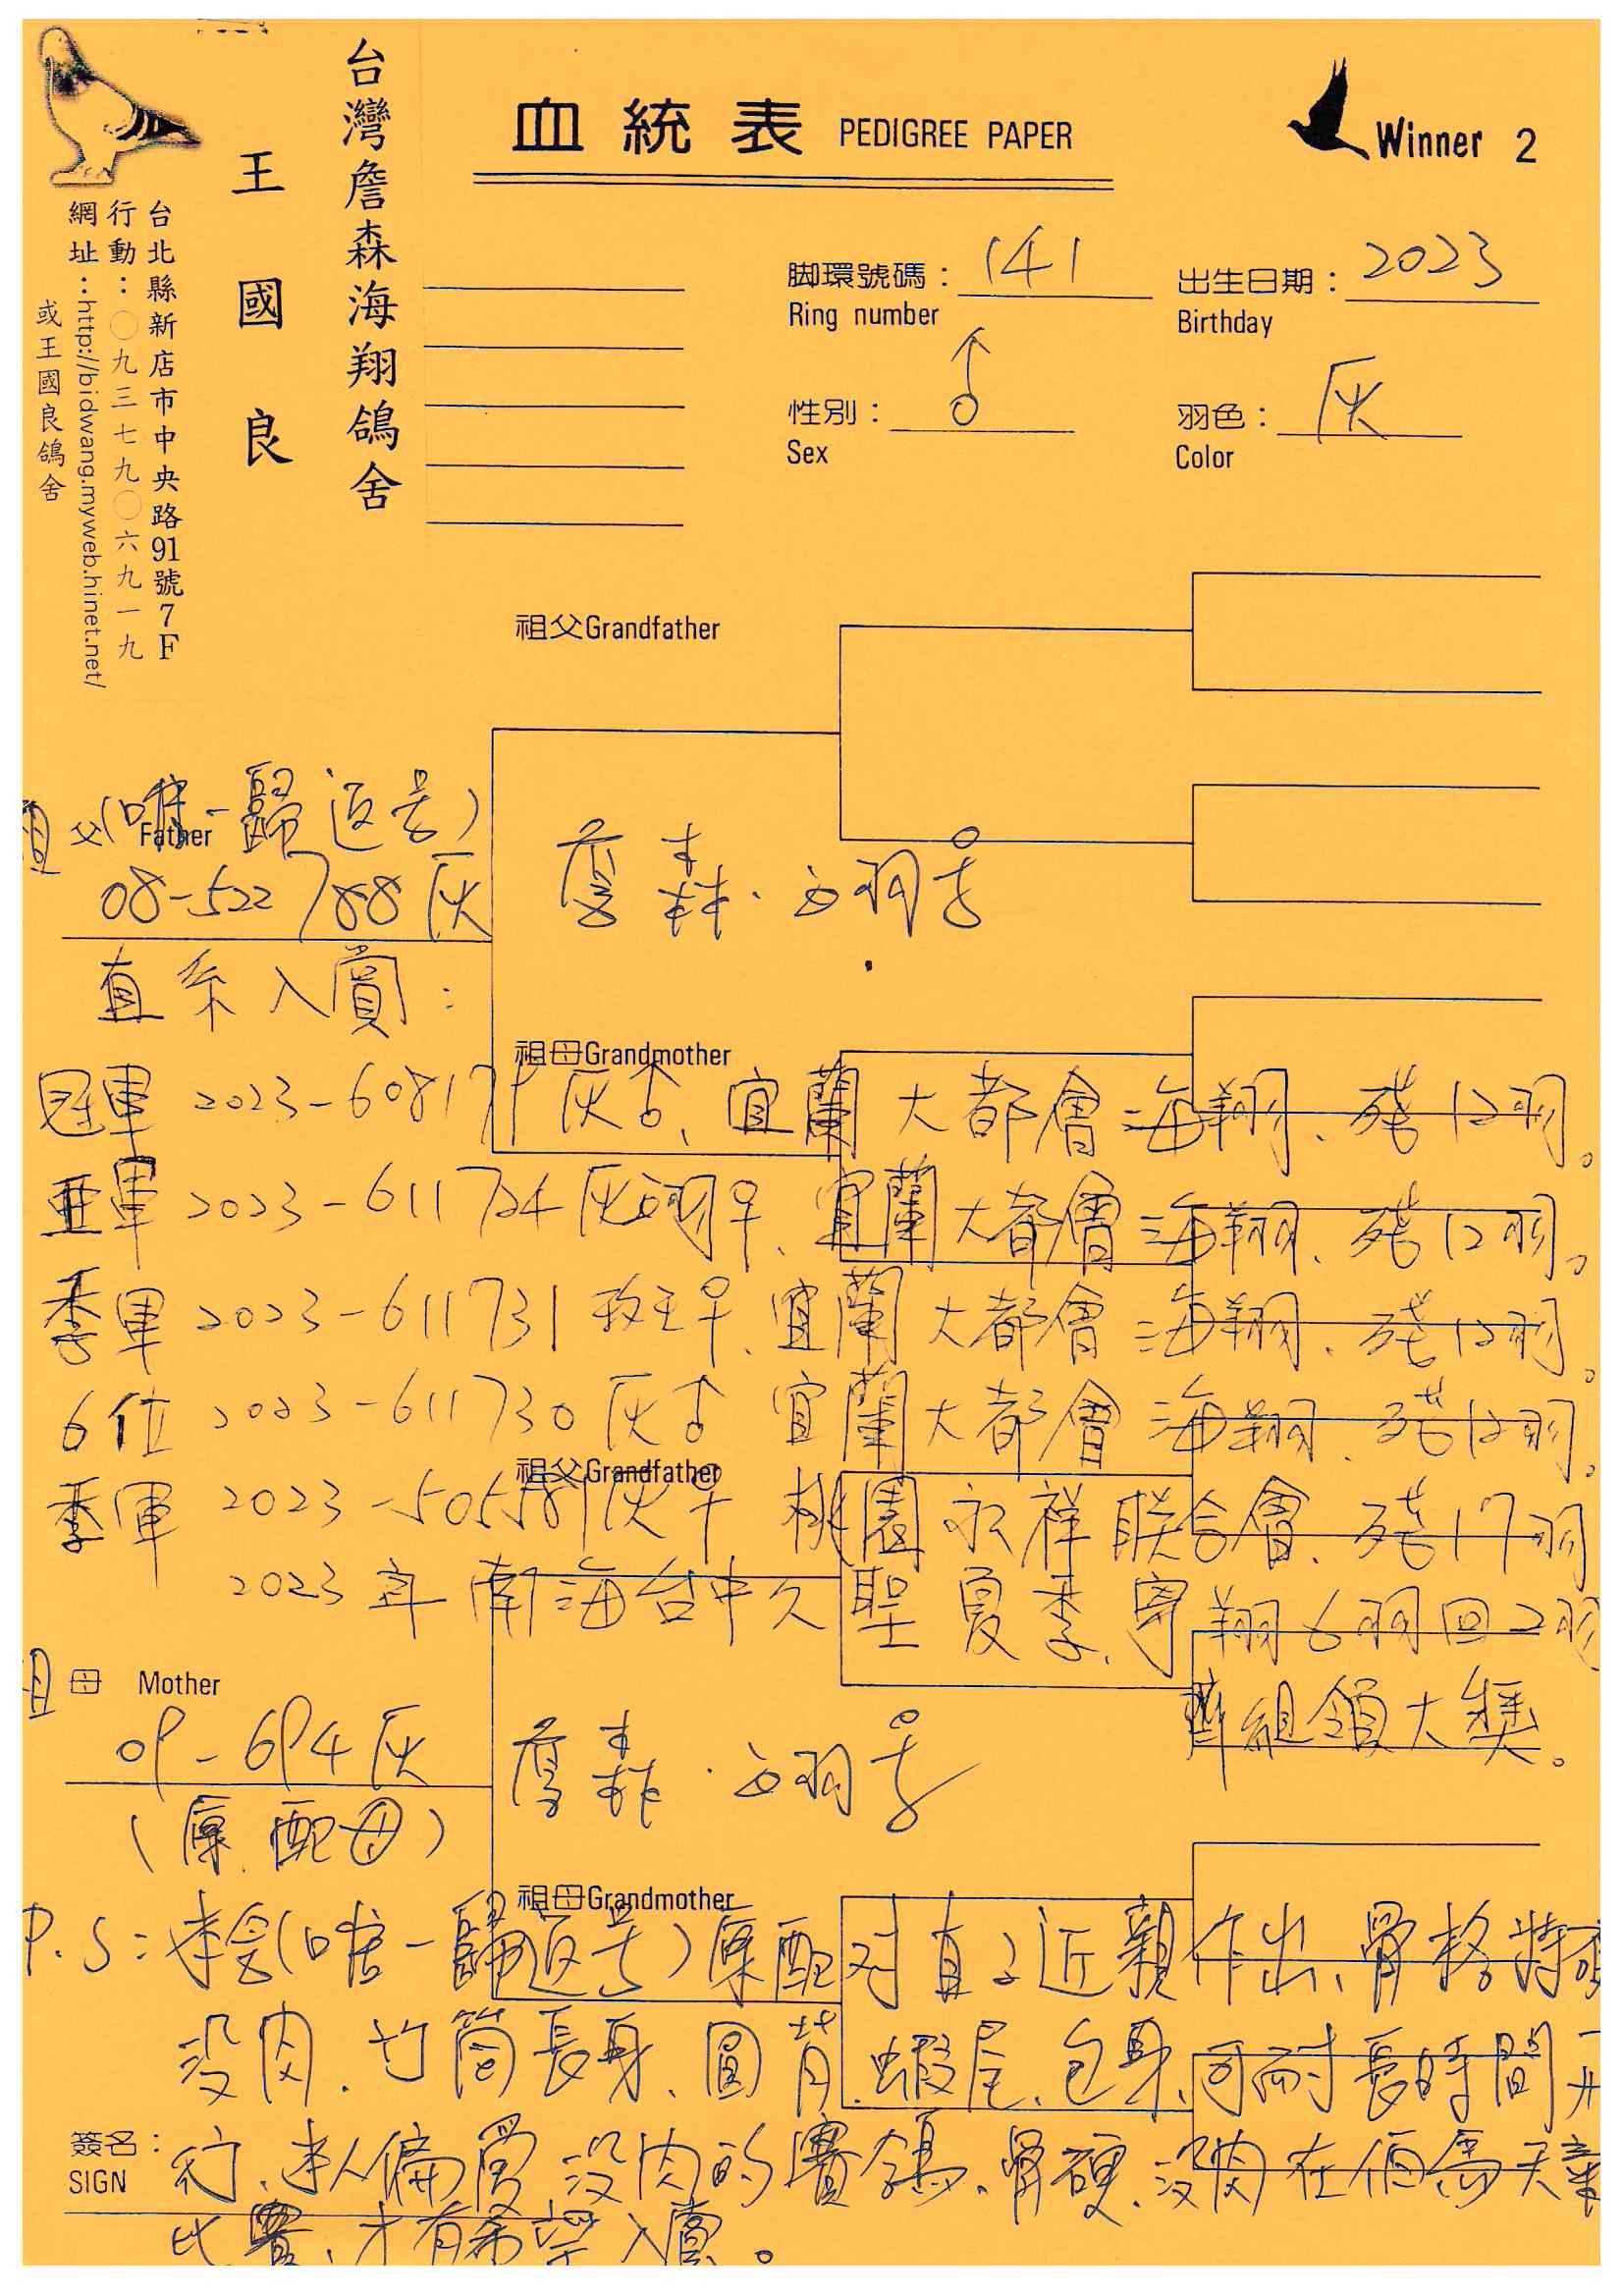 台灣詹森海翔鴿舍
王國良
台北縣新店市中央路91號7F
行動：〇九三七九〇六九一九
網址：http://bidwang.myweb.hinet.net/
或王國良鴿舍
血統表 PEDIGREE PAPER
Winner 2
脚環號碼： 141
Ring number
出生日期： 2023
Birthday
性別： ♂
Sex
羽色： 灰
Color
祖父Grandfather
祖父 Father (唯一歸返号)
08-522788灰
詹森·
直系入賞：
祖母Grandmother
冠軍 2023-608171灰 宜蘭大都會海翔、殘12羽。
亜軍 2023-611724灰 宜蘭大都會海翔、殘12羽。
季軍 2023-611731 宜蘭大都會海翔、殘12羽。
6位 2023-611730灰 宜蘭大都會海翔、殘12羽。
祖父Grandfather
季軍 2023-505581灰♀ 桃園永祥联合會、殘17羽
2023年南海台中久聖夏季、寄翔6羽回2羽
組領大獎。
祖母 Mother
09-694灰
詹森·
(原配母)
祖母Grandmother
P.S：本舍(唯一歸返号)原配对直子近親作出、骨格特硬
没肉、竹筒長身、圓背、蝦尾、包身、可耐長時間飛
簽名：
SIGN
行、本人偏愛没肉的賽鴿、骨硬、没肉在恒為天氣
比賽、才有希望入賞。